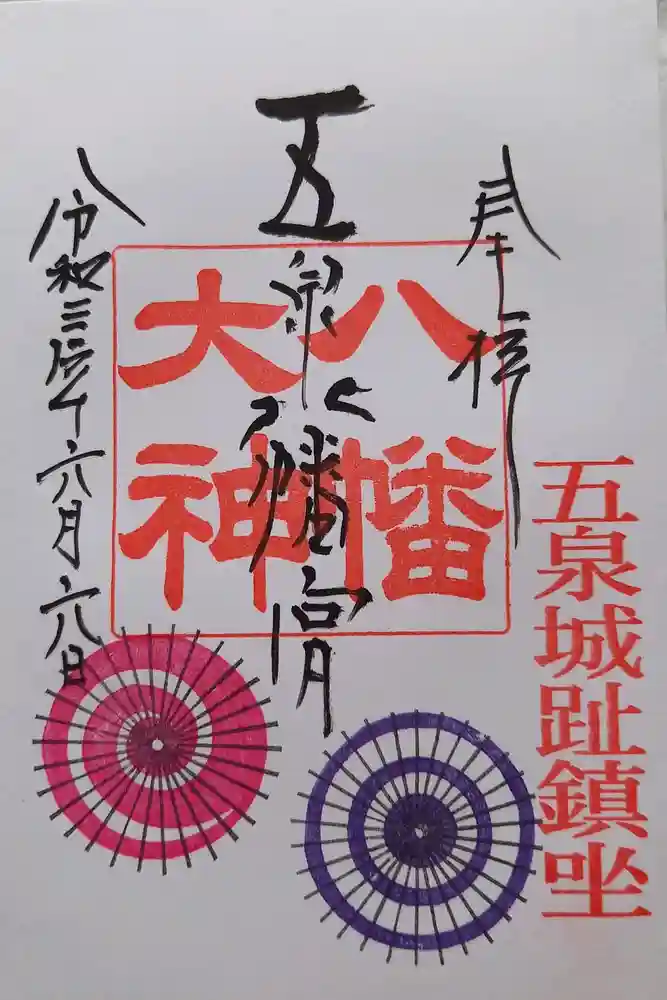 奉拝
五泉城趾鎮坐
五泉八幡宮
八幡
大神
令和三年六月六日